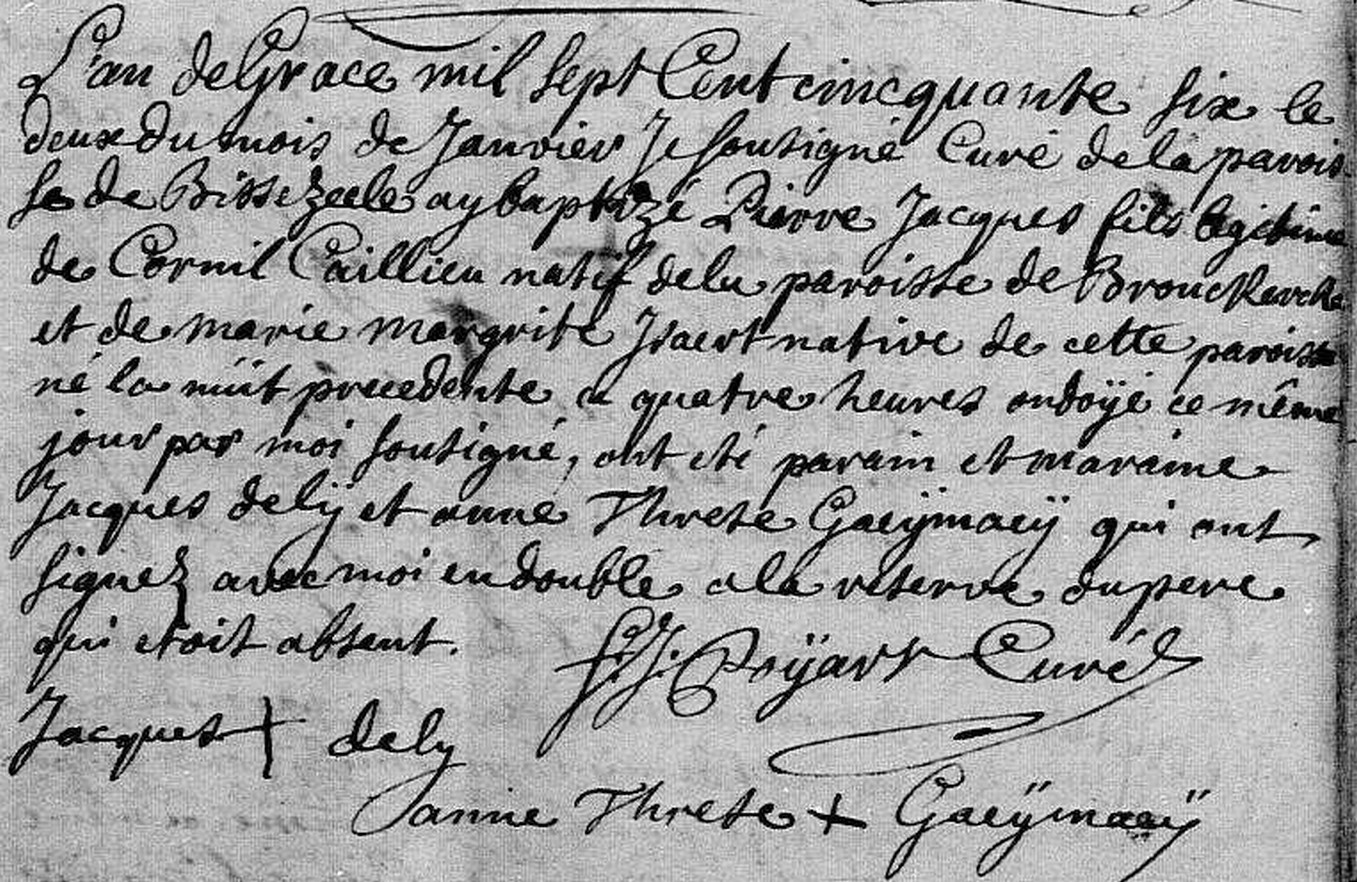 L'an de Grace mil sept Cent cincquante six le
deux du mois de Janvier Je soutigné Curé de la parois
se de Bissezeele ay baptizé Pierre Jacques fils legitime
de Cornil Caillieu natif de la paroisse de Brouckercke
et de marie margrite Isaert native de cette paroisse
né la nüit precedente a quatre heures ondoÿé ce même
jour par moi soutigné, ont été parain et maraine
Jacques delÿ et anne Threse Gaeÿmaeÿ qui ont
signez avec moi en double a la reserve du pere
qui etoit absent.
Curé
Jacques + dely
anne Threse + Gaeÿmaeÿ